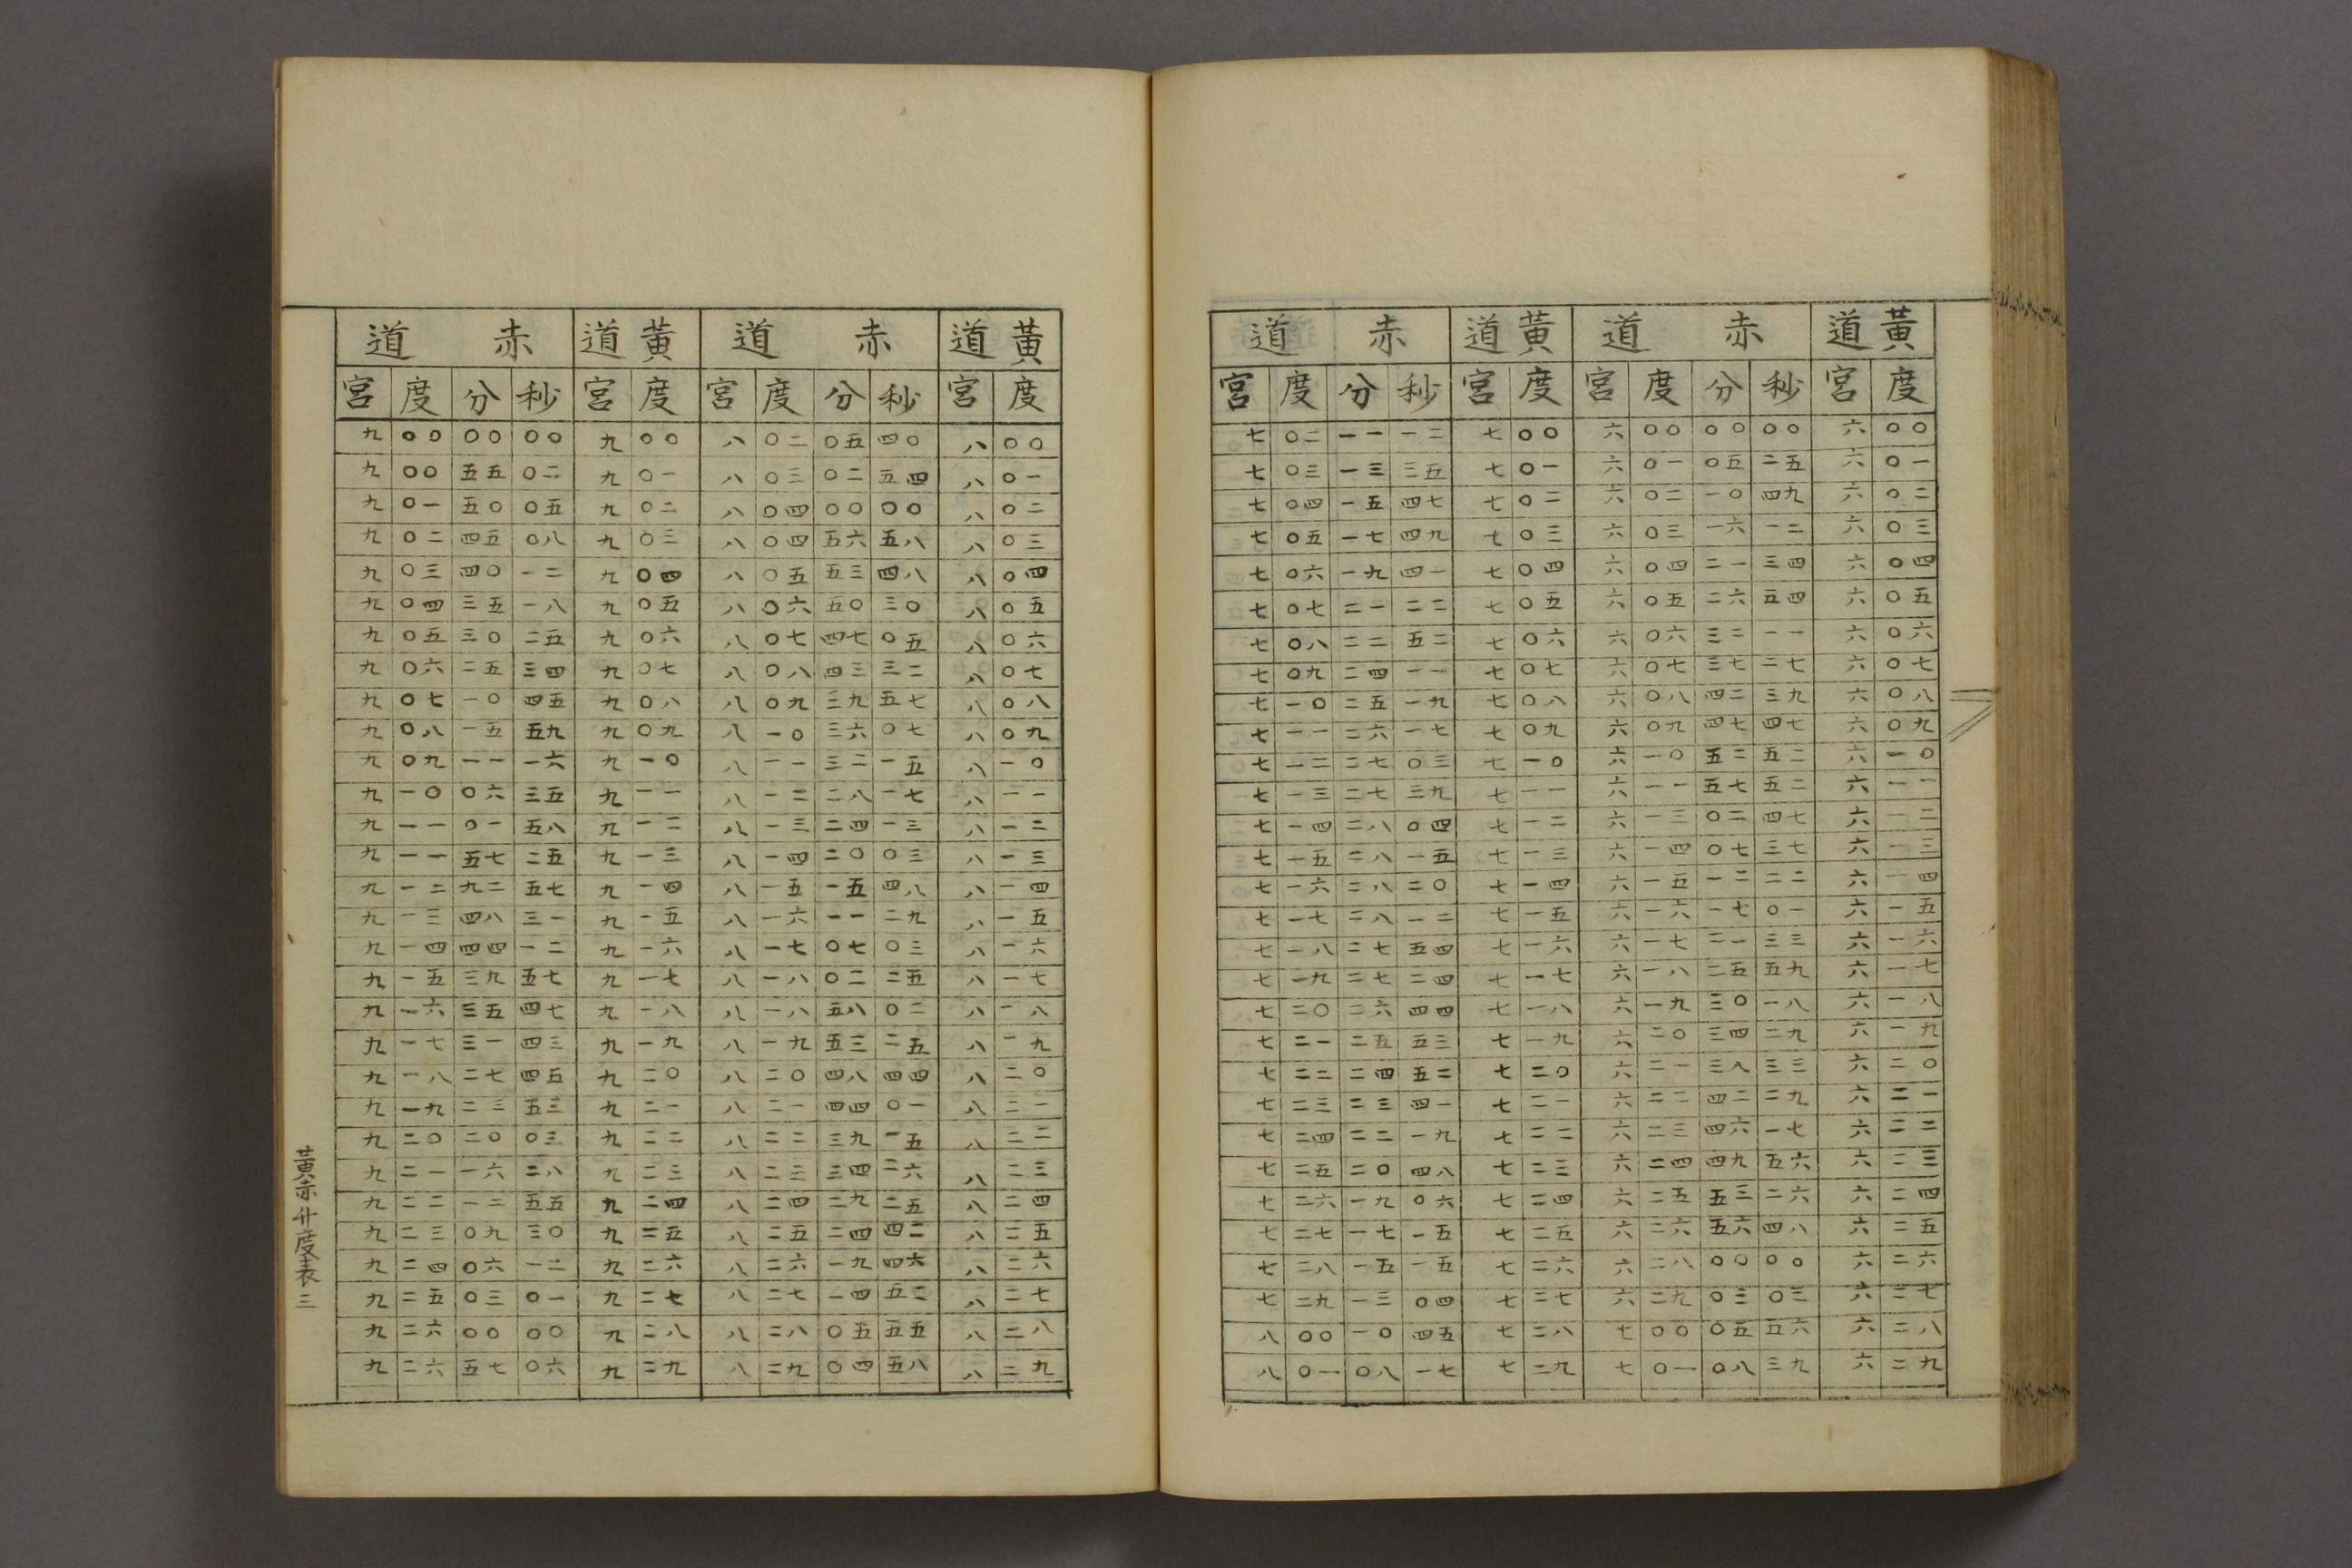 黃道 赤道 黃道 赤道
宮 度 宮 度 分 秒 宮 度 宮 度 分 秒
六 〇〇 六 〇〇 〇〇 〇〇 七 〇〇 七 〇二 一一 一二
六 〇一 六 〇一 〇五 二五 七 〇一 七 〇三 一三 三五
六 〇二 六 〇二 一〇 四九 七 〇二 七 〇四 一五 四七
六 〇三 六 〇三 一六 一二 七 〇三 七 〇五 一七 四九
六 〇四 六 〇四 二一 三四 七 〇四 七 〇六 一九 四一
六 〇五 六 〇五 二六 五四 七 〇五 七 〇七 二一 二二
六 〇六 六 〇六 三二 一一 七 〇六 七 〇八 二二 五二
六 〇七 六 〇七 三七 二七 七 〇七 七 〇九 二四 一一
六 〇八 六 〇八 四二 三九 七 〇八 七 一〇 二五 一九
六 〇九 六 〇九 四七 四七 七 〇九 七 一一 二六 一七
六 一〇 六 一〇 五二 五二 七 一〇 七 一二 二七 〇三
六 一一 六 一一 五七 五二 七 一一 七 一三 二七 三九
六 一二 六 一三 〇二 四七 七 一二 七 一四 二八 〇四
六 一三 六 一四 〇七 三七 七 一三 七 一五 二八 一五
六 一四 六 一五 一二 二二 七 一四 七 一六 二八 二〇
六 一五 六 一六 一七 〇一 七 一五 七 一七 二八 一二
六 一六 六 一七 二一 三三 七 一六 七 一八 二七 五四
六 一七 六 一八 二五 五九 七 一七 七 一九 二七 二四
六 一八 六 一九 三〇 一八 七 一八 七 二〇 二六 四四
六 一九 六 二〇 三四 二九 七 一九 七 二一 二五 五三
六 二〇 六 二一 三八 三三 七 二〇 七 二二 二四 五二
六 二一 六 二二 四二 二九 七 二一 七 二三 二三 四一
六 二二 六 二三 四六 一七 七 二二 七 二四 二二 一九
六 二三 六 二四 四九 五六 七 二三 七 二五 二〇 四八
六 二四 六 二五 五三 二六 七 二四 七 二六 一九 〇六
六 二五 六 二六 五六 四八 七 二五 七 二七 一七 一五
六 二六 六 二八 〇〇 〇〇 七 二六 七 二八 一五 一五
六 二七 六 二九 〇三 〇三 七 二七 七 二九 一三 〇四
六 二八 七 〇〇 〇五 五六 七 二八 八 〇〇 一〇 四五
六 二九 七 〇一 〇八 三九 七 二九 八 〇一 〇八 一七
黃道 赤道 黃道 赤道
宮 度 宮 度 分 秒 宮 度 宮 度 分 秒
八 〇〇 八 〇二 〇五 四〇 九 〇〇 九 〇〇 〇〇 〇〇
八 〇一 八 〇三 〇二 五四 九 〇一 九 〇〇 五五 〇二
八 〇二 八 〇四 〇〇 〇〇 九 〇二 九 〇一 五〇 〇五
八 〇三 八 〇四 五六 五八 九 〇三 九 〇二 四五 〇八
八 〇四 八 〇五 五三 四八 九 〇四 九 〇三 四〇 一二
八 〇五 八 〇六 五〇 三〇 九 〇五 九 〇四 三五 一八
八 〇六 八 〇七 四七 〇五 九 〇六 九 〇五 三〇 二五
八 〇七 八 〇八 四三 三二 九 〇七 九 〇六 二五 三四
八 〇八 八 〇九 三九 五七 九 〇八 九 〇七 一〇 四五
八 〇九 八 一〇 三六 〇七 九 〇九 九 〇八 一五 五九
八 一〇 八 一一 三二 一五 九 一〇 九 〇九 一一 一六
八 一一 八 一二 二八 一七 九 一一 九 一〇 〇六 三五
八 一二 八 一三 二四 一三 九 一二 九 一一 〇一 五八
八 一三 八 一四 二〇 〇三 九 一三 九 一一 五七 二五
八 一四 八 一五 一五 四八 九 一四 九 一二 九二 五七
八 一五 八 一六 一一 二九 九 一五 九 一三 四八 三一
八 一六 八 一七 〇七 〇三 九 一六 九 一四 四四 一二
八 一七 八 一八 〇二 三五 九 一七 九 一五 三九 五七
八 一八 八 一八 五八 〇二 九 一八 九 一六 三五 四七
八 一九 八 一九 五三 二五 九 一九 九 一七 三一 四三
八 二〇 八 二〇 四八 四四 九 二〇 九 一八 二七 四五
八 二一 八 二一 四四 〇一 九 二一 九 一九 二三 五三
八 二二 八 二二 三九 一五 九 二二 九 二〇 二〇 〇三
八 二三 八 二三 三四 二六 九 二三 九 二一 一六 二八
八 二四 八 二四 二九 三五 九 二四 九 二二 一二 五五
八 二五 八 二五 二四 四二 九 二五 九 二三 〇九 三〇
八 二六 八 二六 一九 四六 九 二六 九 二四 〇六 一二
八 二七 八 二七 一四 五二 九 二七 九 二五 〇三 〇一
八 二八 八 二八 〇五 五五 九 二八 九 二六 〇〇 〇〇
八 二九 八 二九 〇四 五八 九 二九 九 二六 五七 〇六
黃赤升度表 三